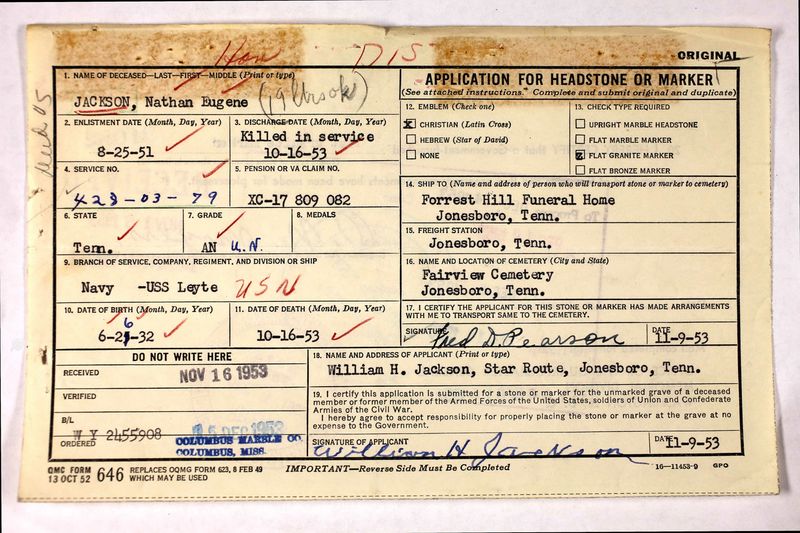 Hon DIS
ORIGINAL
1. NAME OF DECEASED—LAST—FIRST—MIDDLE (Print or type)
JACKSON, Nathan Eugene
2. ENLISTMENT DATE (Month, Day, Year)
8-25-51
3. DISCHARGE DATE (Month, Day, Year)
Killed in service
10-16-53
4. SERVICE NO.
423-03-79
5. PENSION OR VA CLAIM NO.
XC-17 809 082
6. STATE
Tenn.
7. GRADE
AN U.N.
8. MEDALS
9. BRANCH OF SERVICE, COMPANY, REGIMENT, AND DIVISION OR SHIP
Navy -USS Leyte USN
10. DATE OF BIRTH (Month, Day, Year)
6-26-32
11. DATE OF DEATH (Month, Day, Year)
10-16-53
APPLICATION FOR HEADSTONE OR MARKER
(See attached instructions. Complete and submit original and duplicate)
12. EMBLEM (Check one)
X CHRISTIAN (Latin Cross)
HEBREW (Star of David)
NONE
13. CHECK TYPE REQUIRED
UPRIGHT MARBLE HEADSTONE
FLAT MARBLE MARKER
X FLAT GRANITE MARKER
FLAT BRONZE MARKER
14. SHIP TO (Name and address of person who will transport stone or marker to cemetery)
Forrest Hill Funeral Home
Jonesboro, Tenn.
15. FREIGHT STATION
Jonesboro, Tenn.
16. NAME AND LOCATION OF CEMETERY (City and State)
Fairview Cemetery
Jonesboro, Tenn.
17. I CERTIFY THE APPLICANT FOR THIS STONE OR MARKER HAS MADE ARRANGEMENTS
WITH ME TO TRANSPORT SAME TO THE CEMETERY.
SIGNATURE Fred D. Pearson DATE 11-9-53
DO NOT WRITE HERE
RECEIVED NOV 16 1953
VERIFIED
B/L
W Y 2455908
ORDERED
15 DEC 1953
COLUMBUS MARBLE CO.
COLUMBUS, MISS.
18. NAME AND ADDRESS OF APPLICANT (Print or type)
William H. Jackson, Star Route, Jonesboro, Tenn.
19. I certify this application is submitted for a stone or marker for the unmarked grave of a deceased
member or former member of the Armed Forces of the United States, soldiers of Union and Confederate
Armies of the Civil War.
I hereby agree to accept responsibility for properly placing the stone or marker at the grave at no
expense to the Government.
SIGNATURE OF APPLICANT DATE
William H. Jackson 11-9-53
QMC FORM 646 REPLACES OQMG FORM 623, 8 FEB 49
13 OCT 52 WHICH MAY BE USED
IMPORTANT—Reverse Side Must Be Completed
16—11453-9 GPO